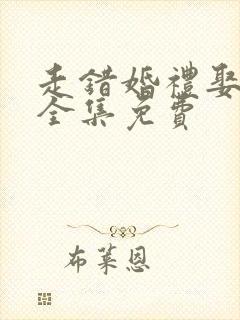 走錯婚禮娶
全集免費
布萊恩